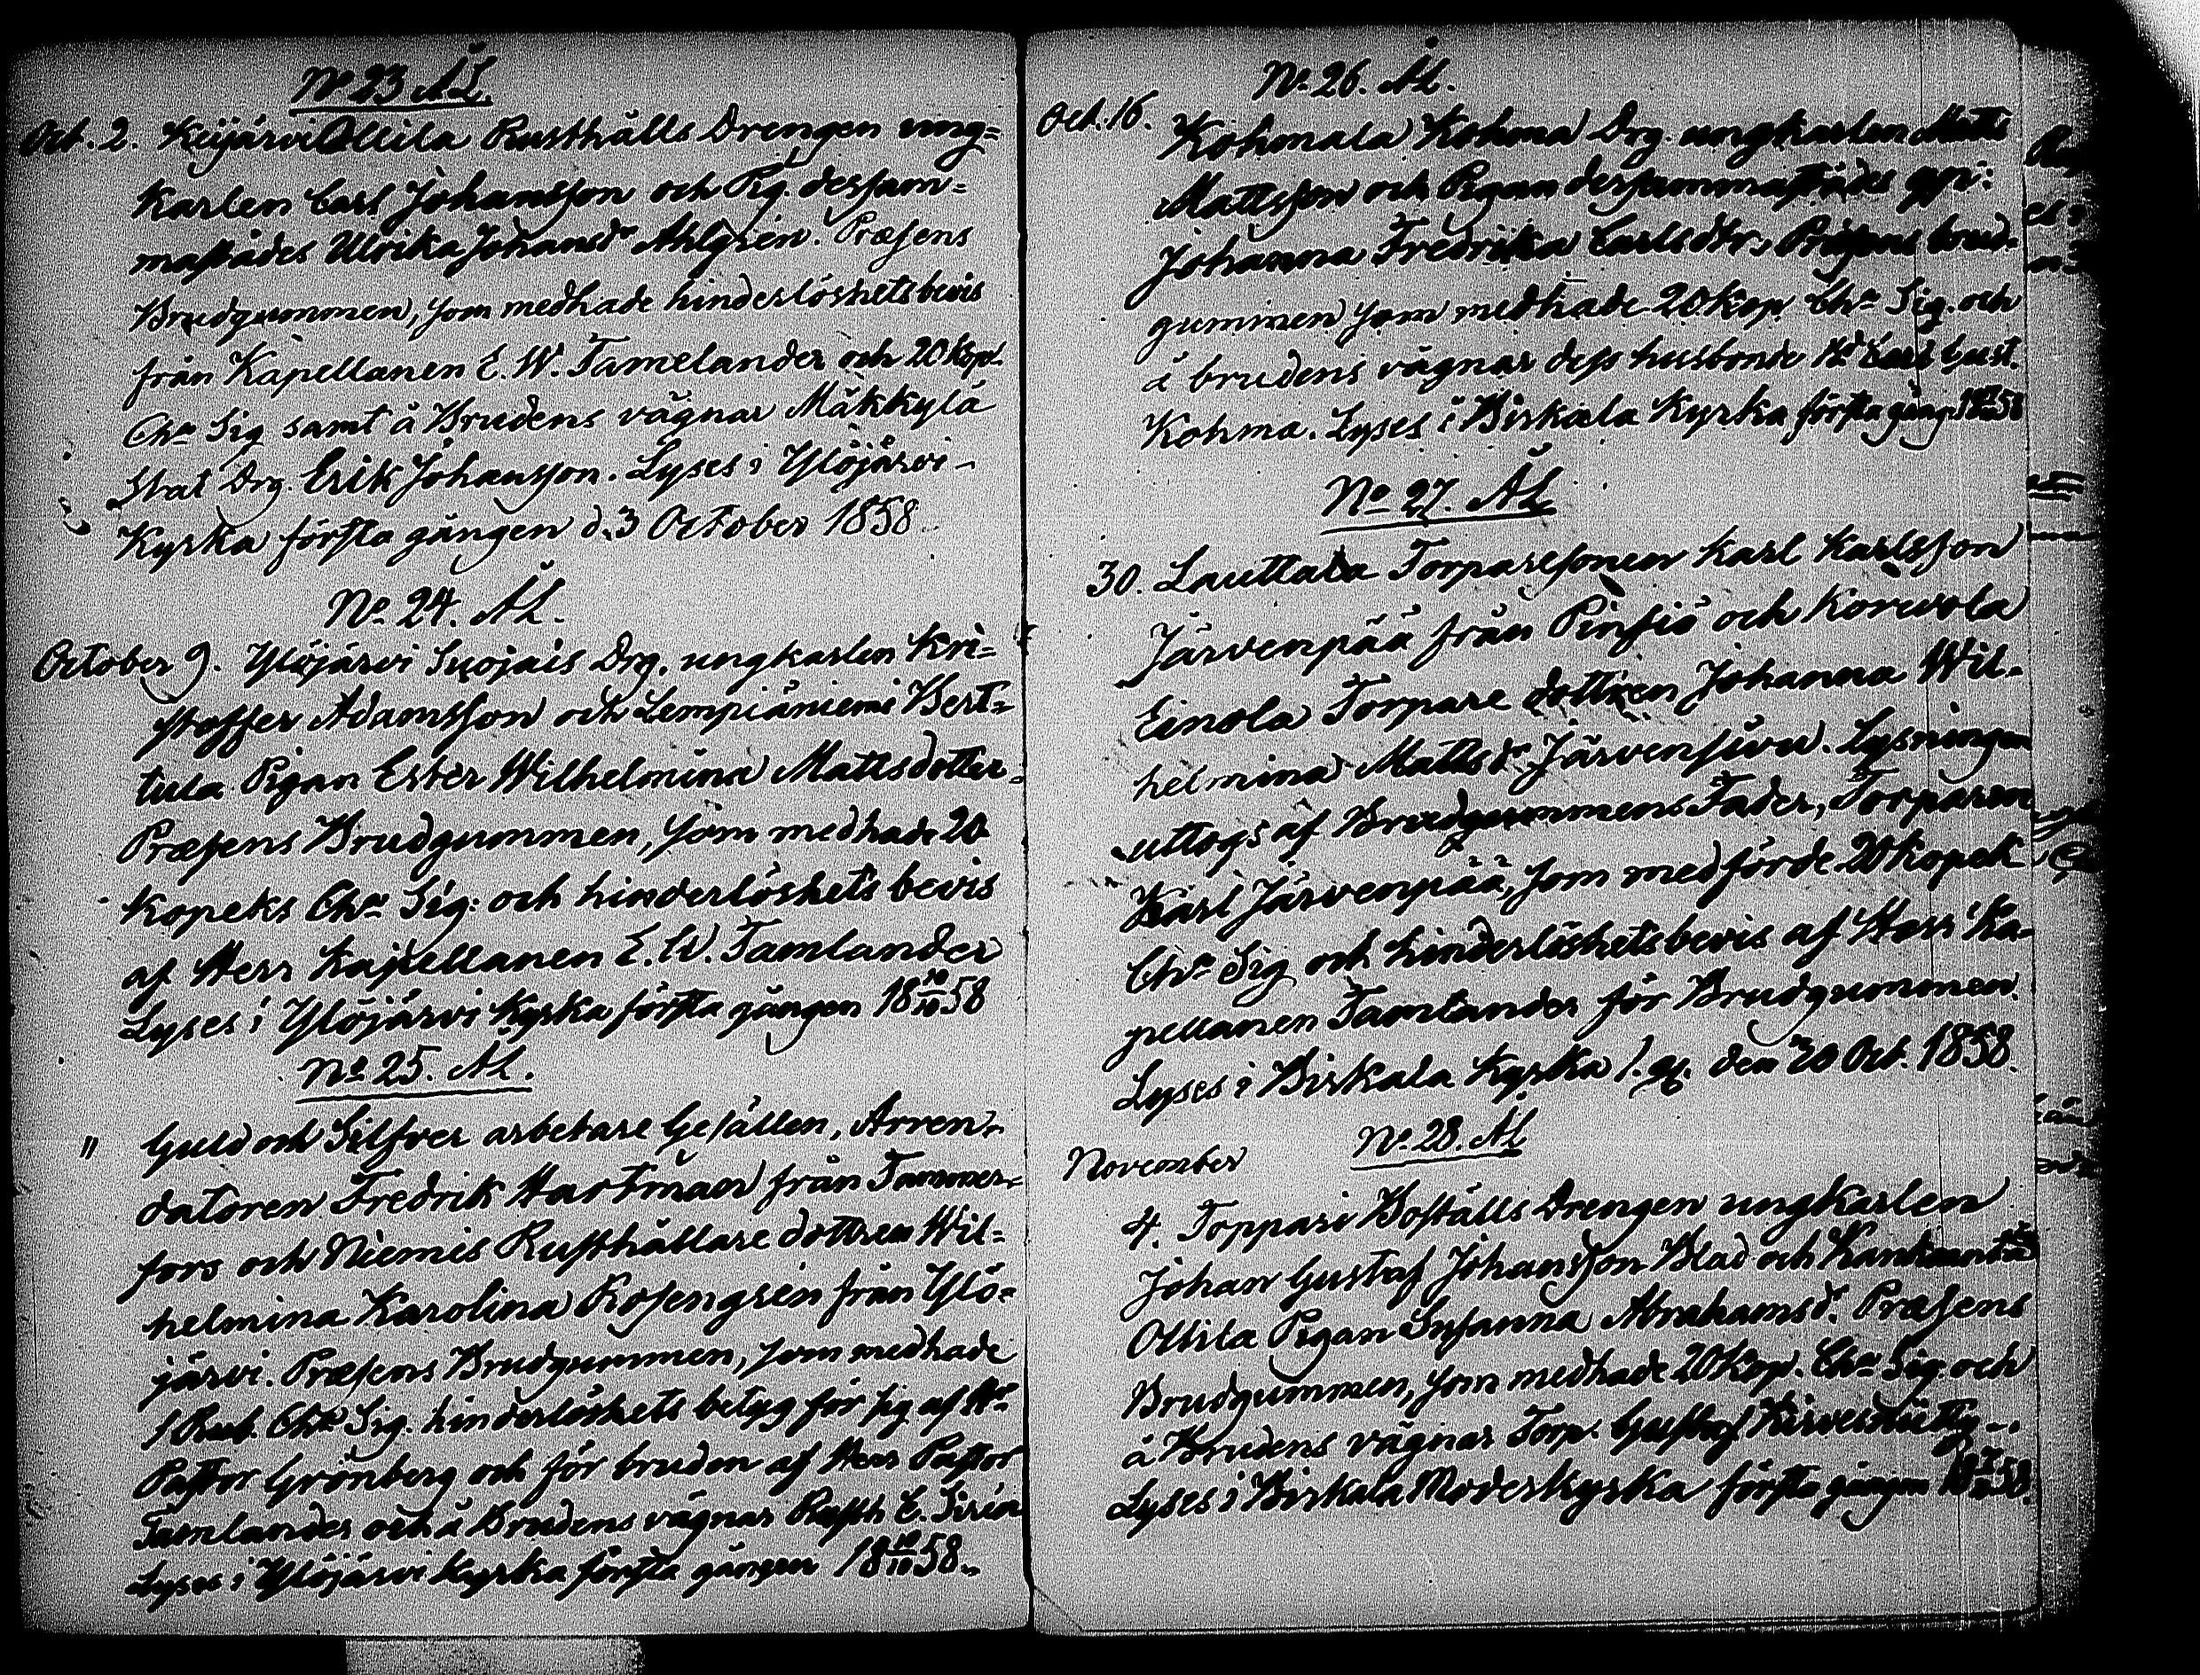 No 23 ÅL.
Oct. 2. Keijärvi Ollila Rusthålls Drengen ung=
karlen Carl Johansson och Pig. dersam=
mastädes Ulrika Johansdr Ahlgrén. Præsens
Brudgummen, som medhade hinderlöshetsbevis
från Kapellanen E. W. Tamelander och 20 kop.
Cha Sig samt å Brudens vägnar Mäkkylä
Stat Drg. Erik Johansson. Lyses i Ylöjärvi
Kyrka första gången d. 3 October 1858.
No 24. ÅL.
October 9. Ylöjärvi Suojais Drg. ungkarlen Kri=
stoffer Adamsson och Lempiäniemi Bert=
tula Pigan Ester Wilhelmina Mattsdotter.
Præsens Brudgummen, som medhade 20
kopeks Cha Sig: och hinderlöshets bevis
af Herr Kapellanen E. W. Tamlander
Lyses i Ylöjärvi Kyrka första gången 18 10/10 58
No 25. ÅL.
" Guld och Silfver arbetare Gesällen, Arren=
datoren Fredrik Hartman från Tammer=
fors och Niemis Rusthållare dottren Wil=
helmina Karolina Rosengrén från Ylö=
järvi. Præsens Brudgummen, som medhade
1 Rub. Cha Sig. hinderlöshets betyg för sig af Hr
Pastor Grönberg och för bruden af Herr Pastor
Tamlander och å Brudens vägnar Rusth. E. Siria
Lyses i Ylöjärvi Kyrka första gången 18 10/10 58.
No 26. ÅL.
Oct. 16. Kohmala Kohma Drg. ungkarlen Matts
Mattsson och Pigan dersammastädes
Johanna Fredrika Carlsdtr, Præsens brud-
gummen som medhade 20 Kop Cha Sig. och
å brudens vägnar dess husbonde Karl Gust.
Kohma. Lyses i Birkala Kyrka första gång 18 58
No 27. ÅL
30. Lauttala Torparesonen Karl Karlsson
Järvenpää från Pinsiö och Korwola
Einola Torpare dottren Johanna Wil-
helmina Mattsdr Järvensivu. Lysningen
uttogs af Brudgummens Fader, Torparen
Karl Järvenpää, som medförde 20 kopek
Cha Sig och hinderlöshetsbevis af Herr Ka-
pellanen Tamlander för Brudgummen.
Lyses i Birkala Kyrka 1. g. den 30 Oct. 1858.
No 28. ÅL
November
4. Toppari Boställs Drengen ungkarlen
Johan Gustaf Johansson Blad och
Ollila Pigan Susanna Abrahamsdr. Præsens
Brudgummen, som medhade 20 Kop. Cha Sig. och
å Brudens vägnar Torp. Gustaf
Lyses i Birkala Moderkyrka första gången 18 58.